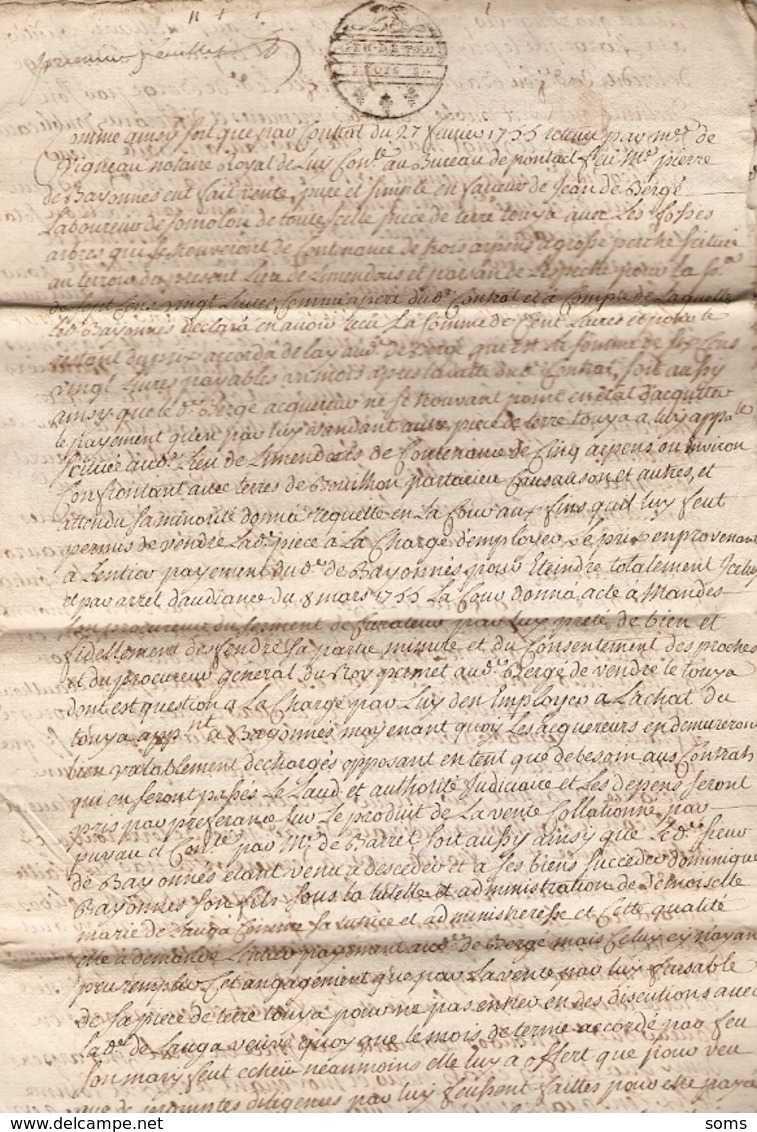 premier feuillet
GEN. DE PAU
Comme ainsy soit que par Contrat du 27 Janvier 1755 retenu par Mr. de
Vigneau notaire Royal de Luy Con.lé au Bureau de pontacq feu Mr. pierre
de Bayonnes eut fait vente pure et simple en faveur de Jean de Bergé
Laboureur de Somolou de toute Icelle piece de terre touya avec Les fosses
arbres qui se trouveront de Contenance de trois arpens a grosse perche scituée
au terroir du present Lieu de Limendous et parsan de Lespects pour la so.e
de sept Cens vingt Livres, Comme apert dud. Contrat et a Compte de Laquelle
Led. Bayonnés declara en avoir reçu La somme de Cent Livres et pour le
restant du prix accorda delay aud. de Bergé qui est La somme de six Cens
vingt Livres payables un mois apres la datte dud. Contrat, soit aussy
ainsy que led. Bergé acquereur ne se trouvant point en etat d'acquitter
le payement qu'en par luy vandant autre piece de terre touya a luy app.te
scituée aud. Lieu de Limendous de Contenance de Cinq arpens ou environ
Confrontant avec terres de Bouilhon partacieu Caussauson et autres, et
attendu sa minorité donna requette en La Cour aux fins quil luy feut
permis de vendre Lad. piece a La Charge d'employer Le prix en provenant
a Lentier payement dud. de Bayonnés pour Eteindre totalement Iceluy
et par arret d'audiance du 8 mars 1755 La Cour donna acte a Mandes
son procureur du serment de Curateur par luy preté de bien et
fidellement deffendre sa partie minure et du Consentement des proches
et du procureur général du Roy permet aud. Bergé de vendre le touya
dont est question a La Charge par Luy den Employer a L'achat du
touya app.nt a Bayonnés moyenant quoy Les acquereurs en demureront
bien valablement dechargés opposant en tent que de besoin aux Contrats
qui en seront passés Le Laud et authorité Judiciaire et Les depens seront
pris par preferance sur Le produit de La vente Collationné par
puyau et Con.lé par Mr. de Barret soit aussy ainsy que Led. sieur
de Bayonnés etant venu a desceder et a ses biens succeder dominique
Bayonnes son fils sous la tutelle et administration de demoiselle
marie de Lauga Comme sa tutrice et administeresse et Cette qualité
elle a demandé Lentier payemant aud. de Bergé mais Celuy cy n'ayant
peu remplir Cet angagement que par La vente par luy faisable
de sa piece de terre touya pour ne pas entrer en des discutions avec
Lad. de Lauga veuve quoy que le mois de terme accordé par feu
son mary feut echeu neanmoins elle luy a offert que pour veu
que de promptes diligences par luy feussent faittes pour etre payée
soms